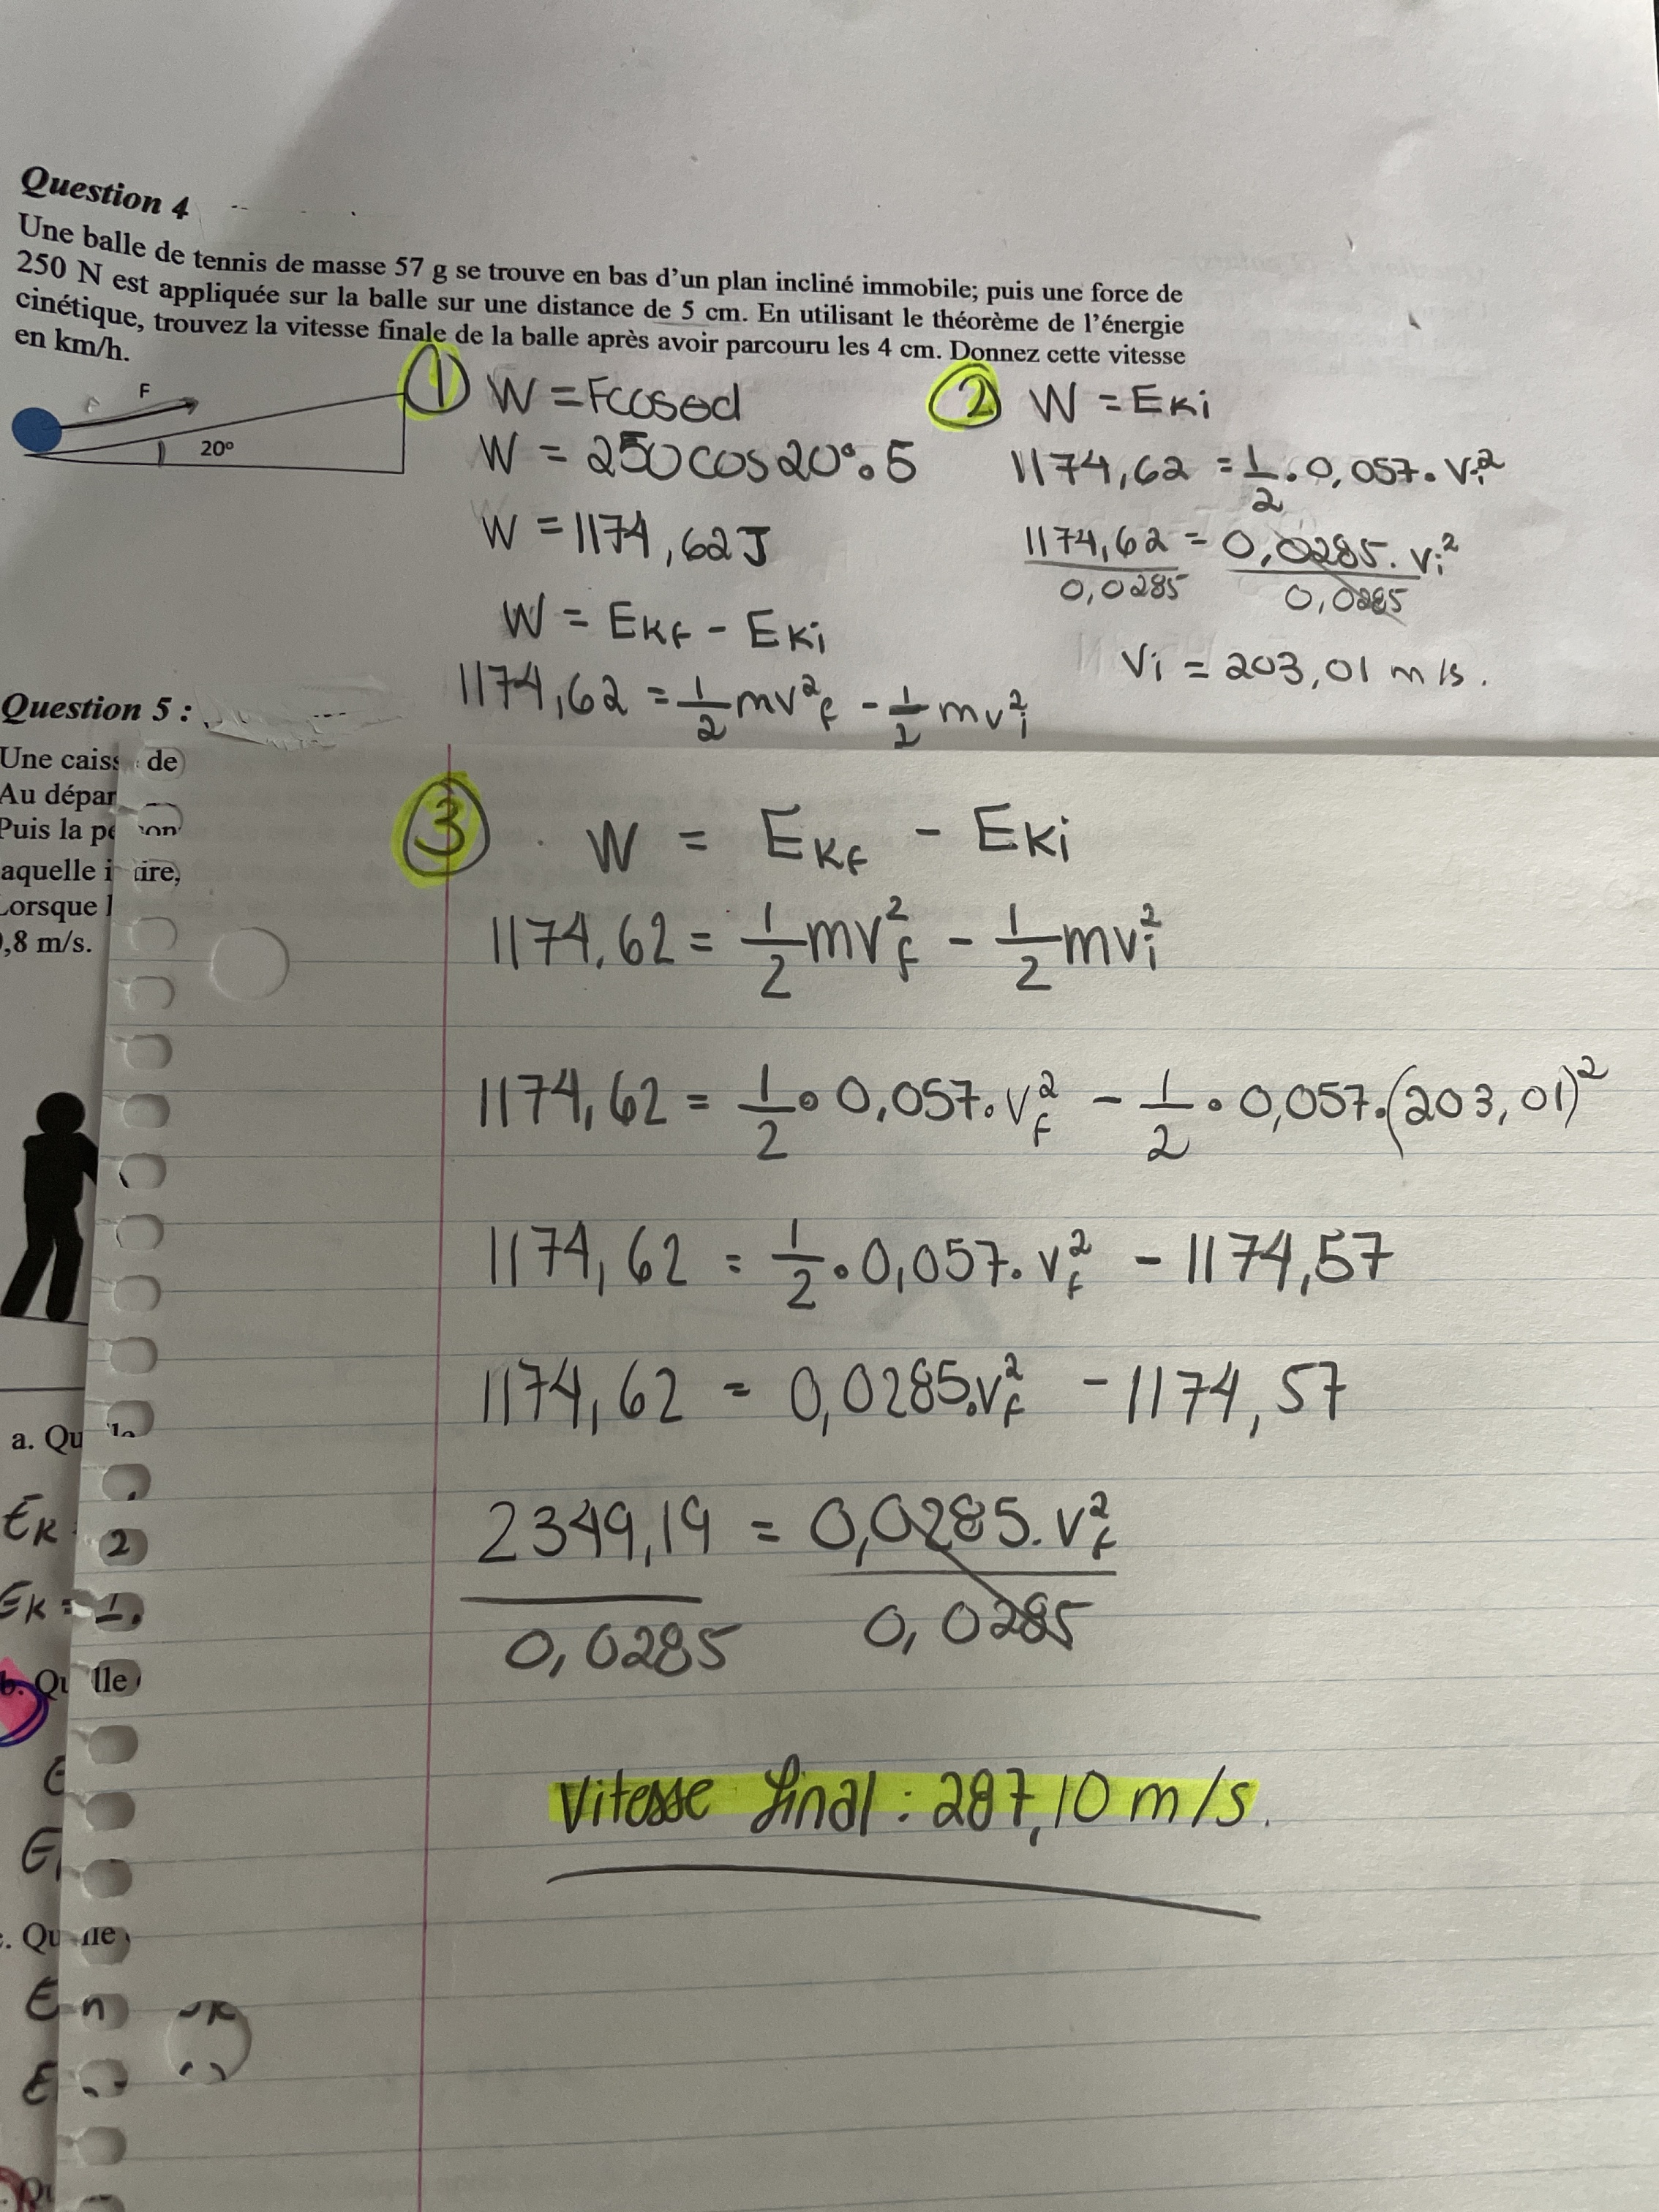 Question 4
Une balle de tennis de masse 57 g se trouve en bas d'un plan incliné immobile; puis une force de
250 N est appliquée sur la balle sur une distance de 5 cm. En utilisant le théorème de l'énergie
cinétique, trouvez la vitesse finale de la balle après avoir parcouru les 4 cm. Donnez cette vitesse
en km/h.
F
20°
① W = Fcosθd
W = 250cos20°. 5
W = 1174,62J
W = EKf - EKi
1174,62 = 1/2 mvf² - 1/2 mvi²
② W = EKi
1174,62 = 1/2 . 0,057. vi²
1174,62/0,0285 = 0,0285. vi²/0,0285
Vi = 203,01 m/s.
Question 5 :
Une caiss de
Au dépar
Puis la pe
aquelle i ire,
Lorsque l
,8 m/s.
③ . W = EKf - EKi
1174,62 = 1/2 mvf² - 1/2 mvi²
1174,62 = 1/2 . 0,057. vf² - 1/2 . 0,057.(203,01)²
1174,62 = 1/2 . 0,057. vf² - 1174,57
1174,62 = 0,0285.vf² - 1174,57
2349,19/0,0285 = 0,0285. vf²/0,0285
Vitesse final : 287,10 m/s.
a. Qu
EK
2
EK = 1
b. Qu lle
E
E
. Qu
E n
E
Qu